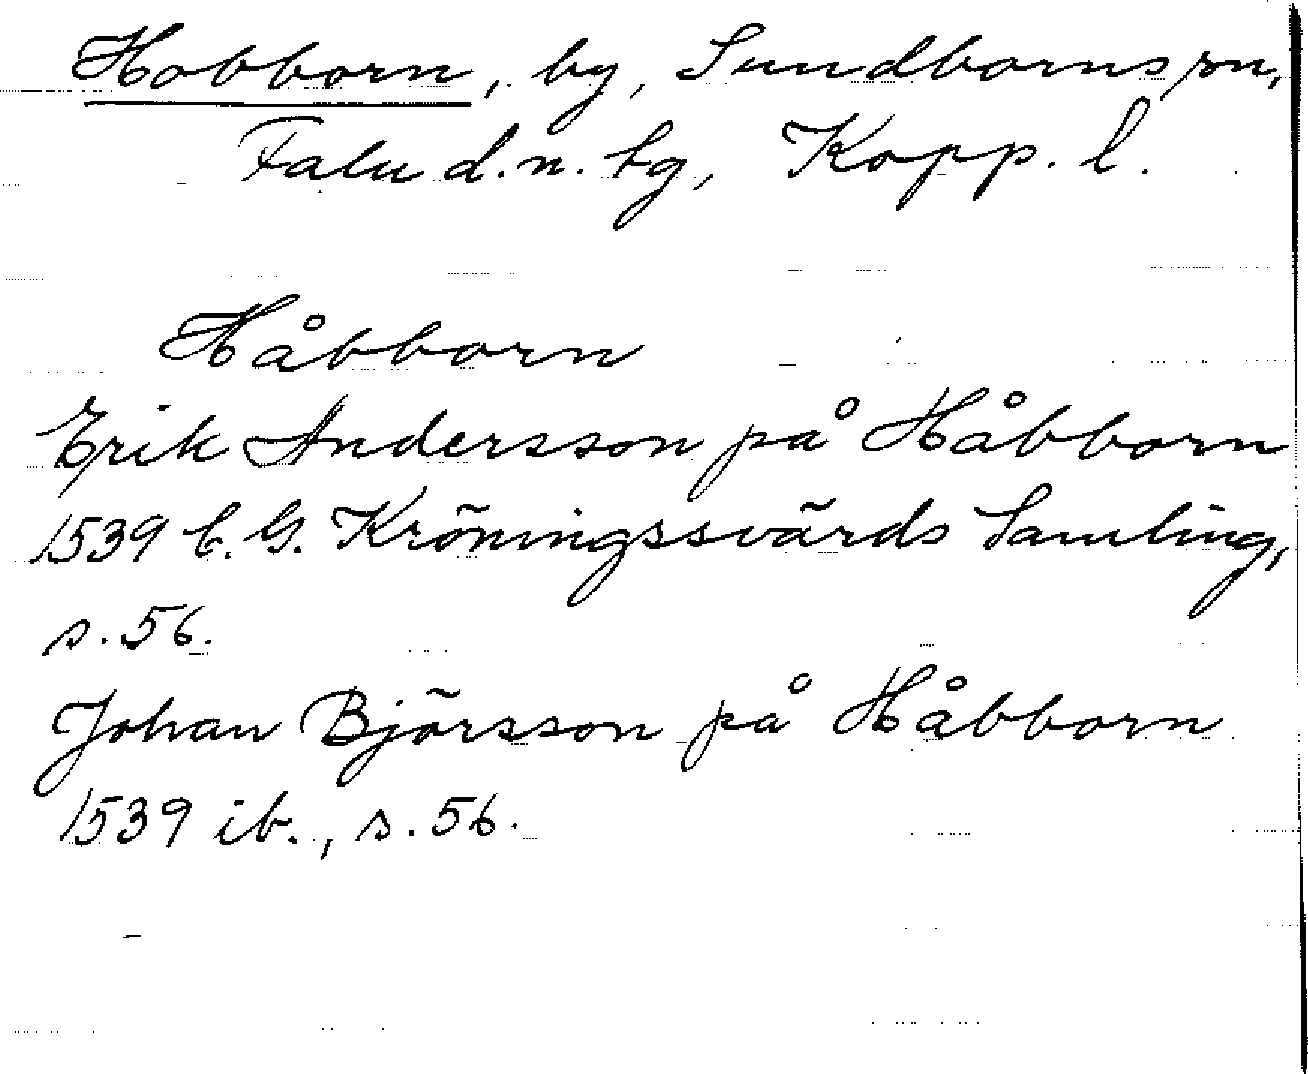 Hobborn, by, Sundborns sn,
Falu d.n. tg, Kopp. l.
Håbborn
Erik Andersson på Håbborn
1539 C. G. Kröningssvärds Samling,
s. 56.
Johan Björsson på Håbborn
1539 ib., s. 56.